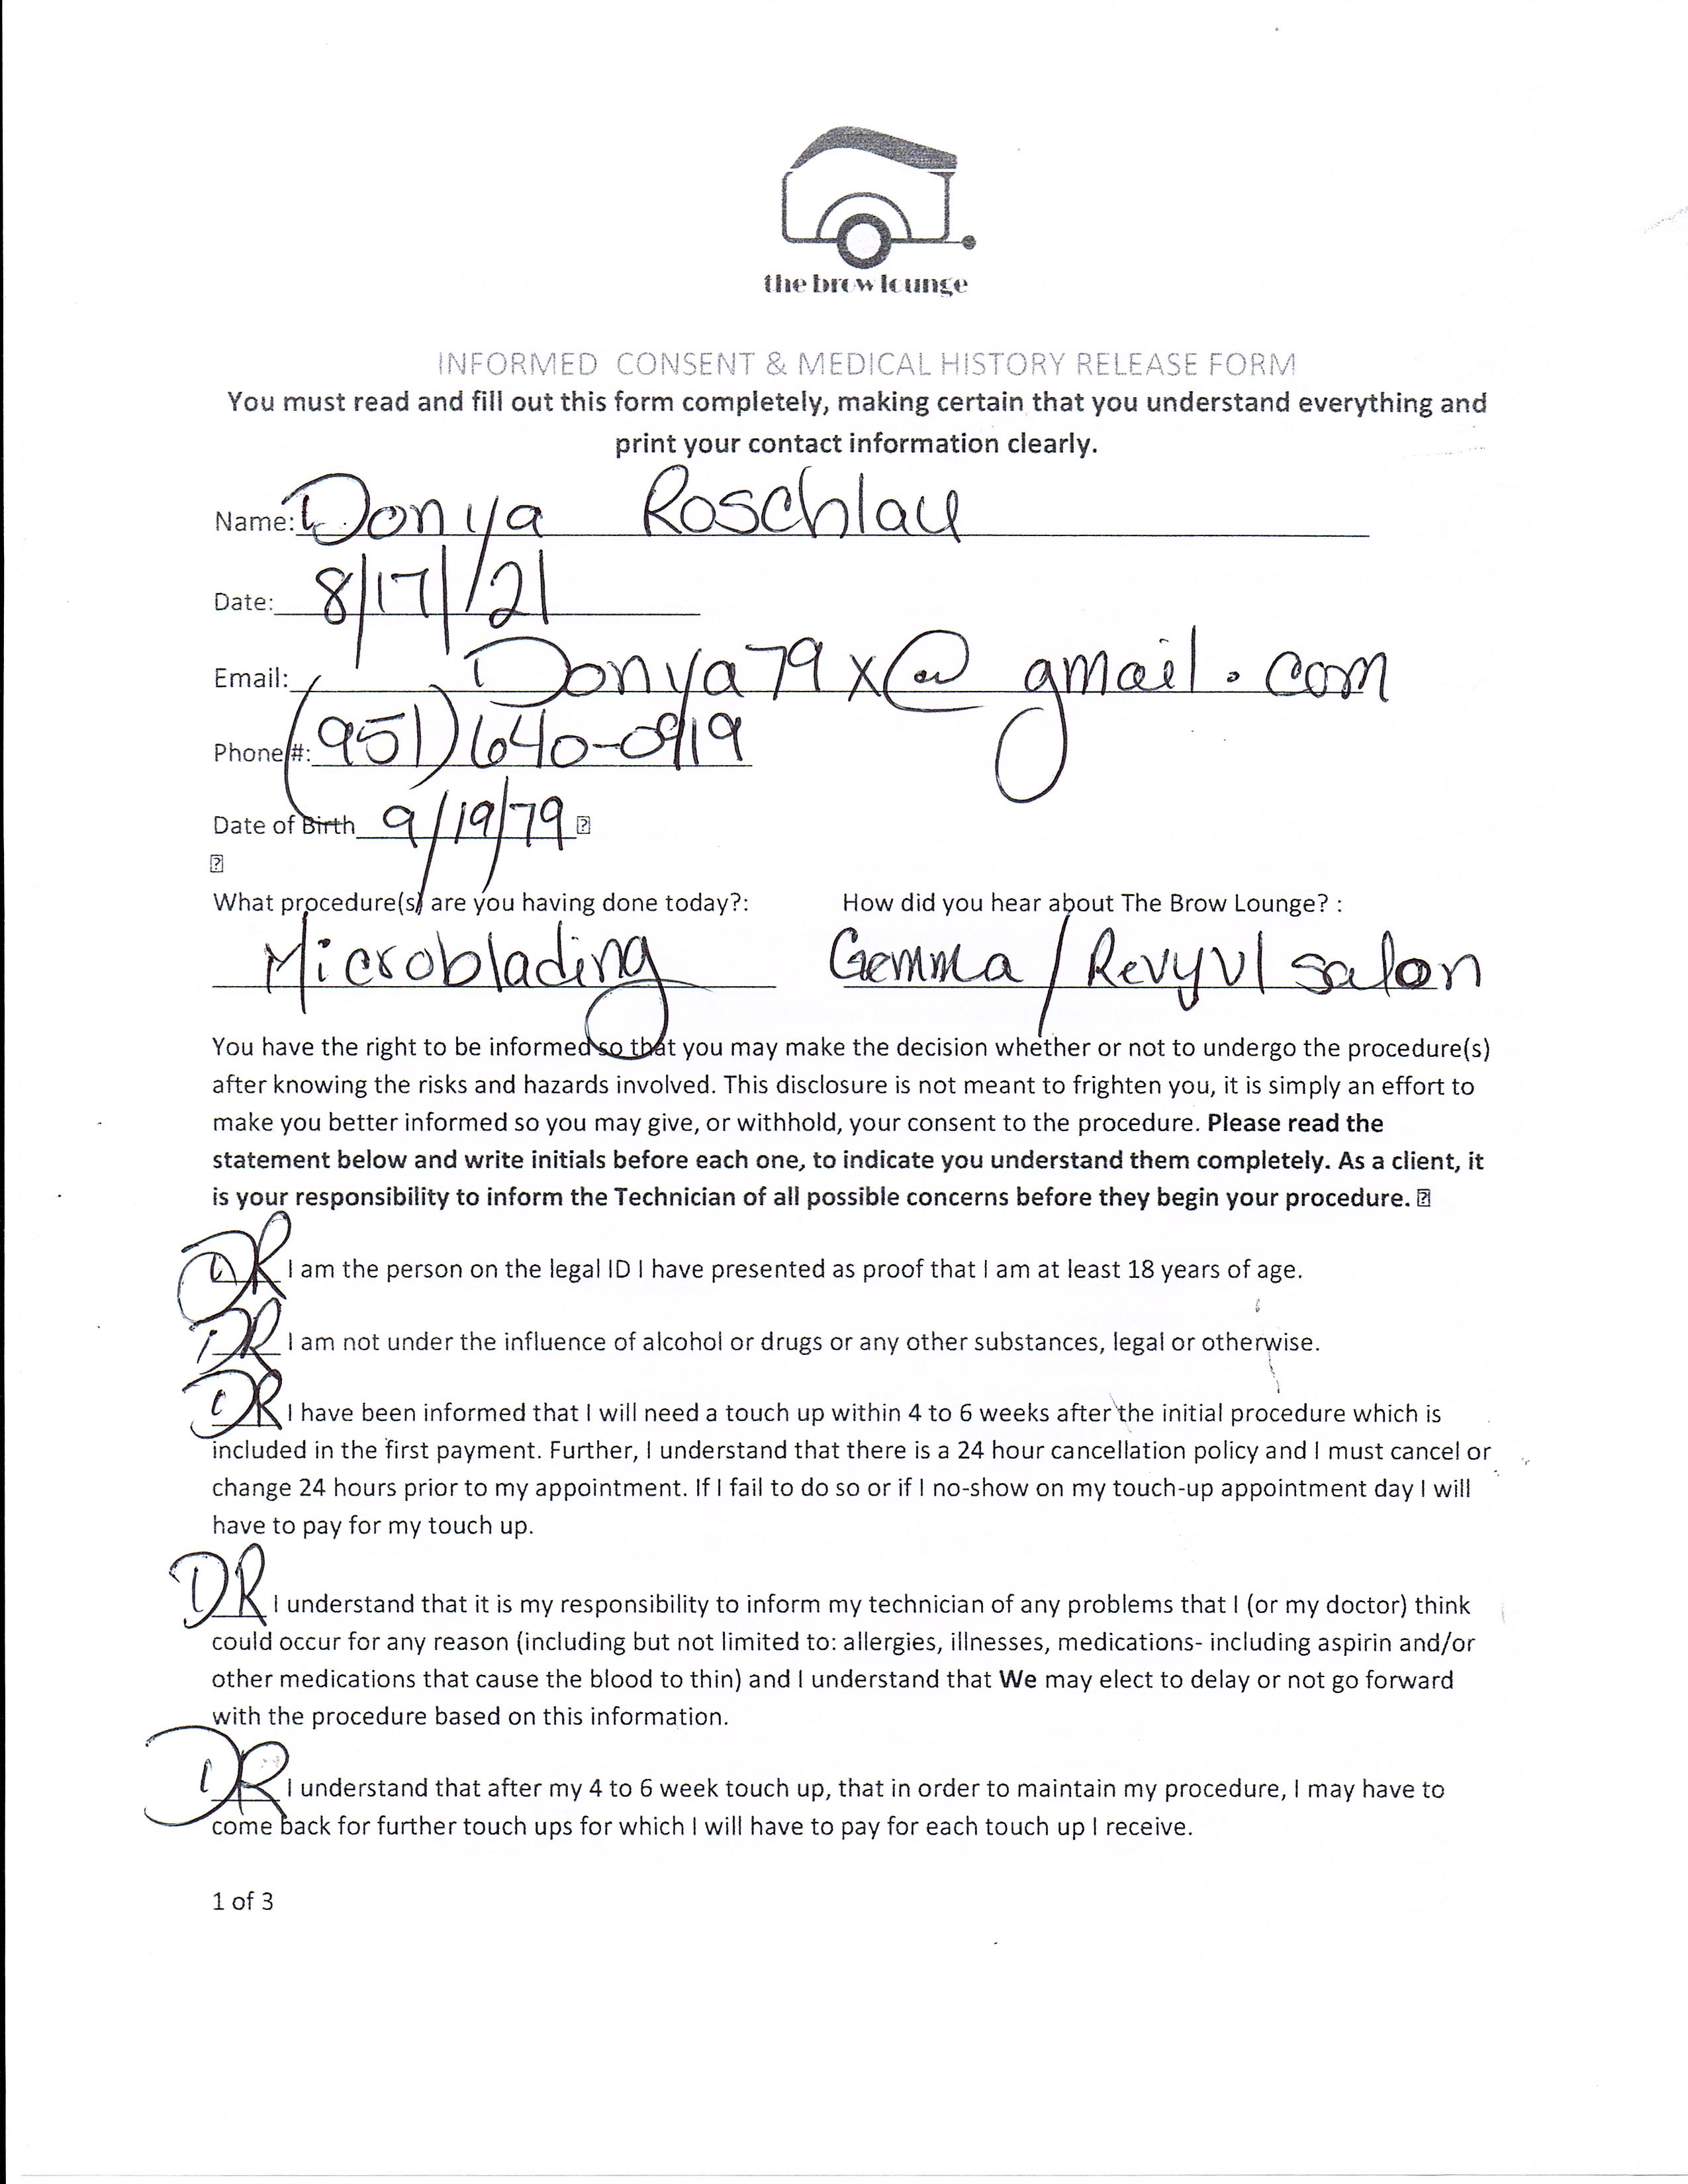 the brow lounge
INFORMED CONSENT & MEDICAL HISTORY RELEASE FORM
You must read and fill out this form completely, making certain that you understand everything and
print your contact information clearly.
Name: Donya Roschlau
Date: 8/17/21
Email: Donya79x@gmail.com
Phone #: (951) 640-0919
Date of Birth 9/19/79
What procedure(s) are you having done today?: How did you hear about The Brow Lounge? :
Microblading Gemma / Revyvl salon
You have the right to be informed so that you may make the decision whether or not to undergo the procedure(s)
after knowing the risks and hazards involved. This disclosure is not meant to frighten you, it is simply an effort to
make you better informed so you may give, or withhold, your consent to the procedure. Please read the
statement below and write initials before each one, to indicate you understand them completely. As a client, it
is your responsibility to inform the Technician of all possible concerns before they begin your procedure.
DR I am the person on the legal ID I have presented as proof that I am at least 18 years of age.
DR I am not under the influence of alcohol or drugs or any other substances, legal or otherwise.
DR I have been informed that I will need a touch up within 4 to 6 weeks after the initial procedure which is
included in the first payment. Further, I understand that there is a 24 hour cancellation policy and I must cancel or
change 24 hours prior to my appointment. If I fail to do so or if I no-show on my touch-up appointment day I will
have to pay for my touch up.
DR I understand that it is my responsibility to inform my technician of any problems that I (or my doctor) think
could occur for any reason (including but not limited to: allergies, illnesses, medications- including aspirin and/or
other medications that cause the blood to thin) and I understand that We may elect to delay or not go forward
with the procedure based on this information.
DR I understand that after my 4 to 6 week touch up, that in order to maintain my procedure, I may have to
come back for further touch ups for which I will have to pay for each touch up I receive.
1 of 3